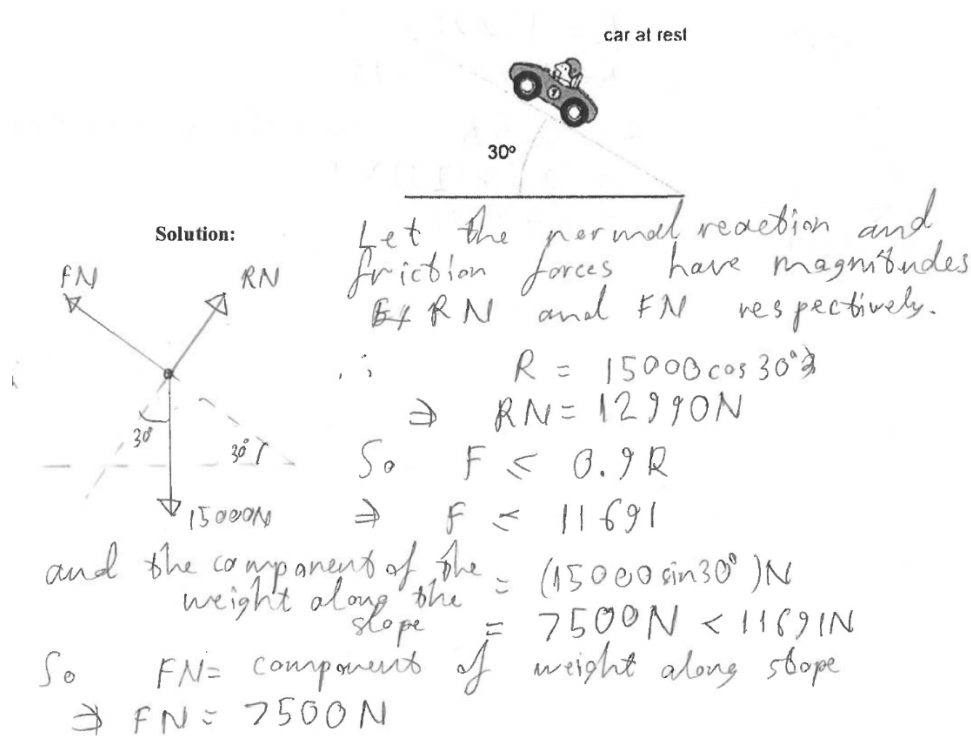 car at rest
30°
Solution:
Let the normal reaction and
friction forces have magnitudes
RN and FN respectively.
FN
RN
30°
30°
15000N
∴ R = 15000 cos 30°
⇒ RN = 12990N
So F ≤ 0.9R
⇒ F ≤ 11691
and the component of the
weight along the
slope
= (15000 sin 30°)N
= 7500N < 11691N
So FN = component of weight along slope
⇒ FN = 7500N